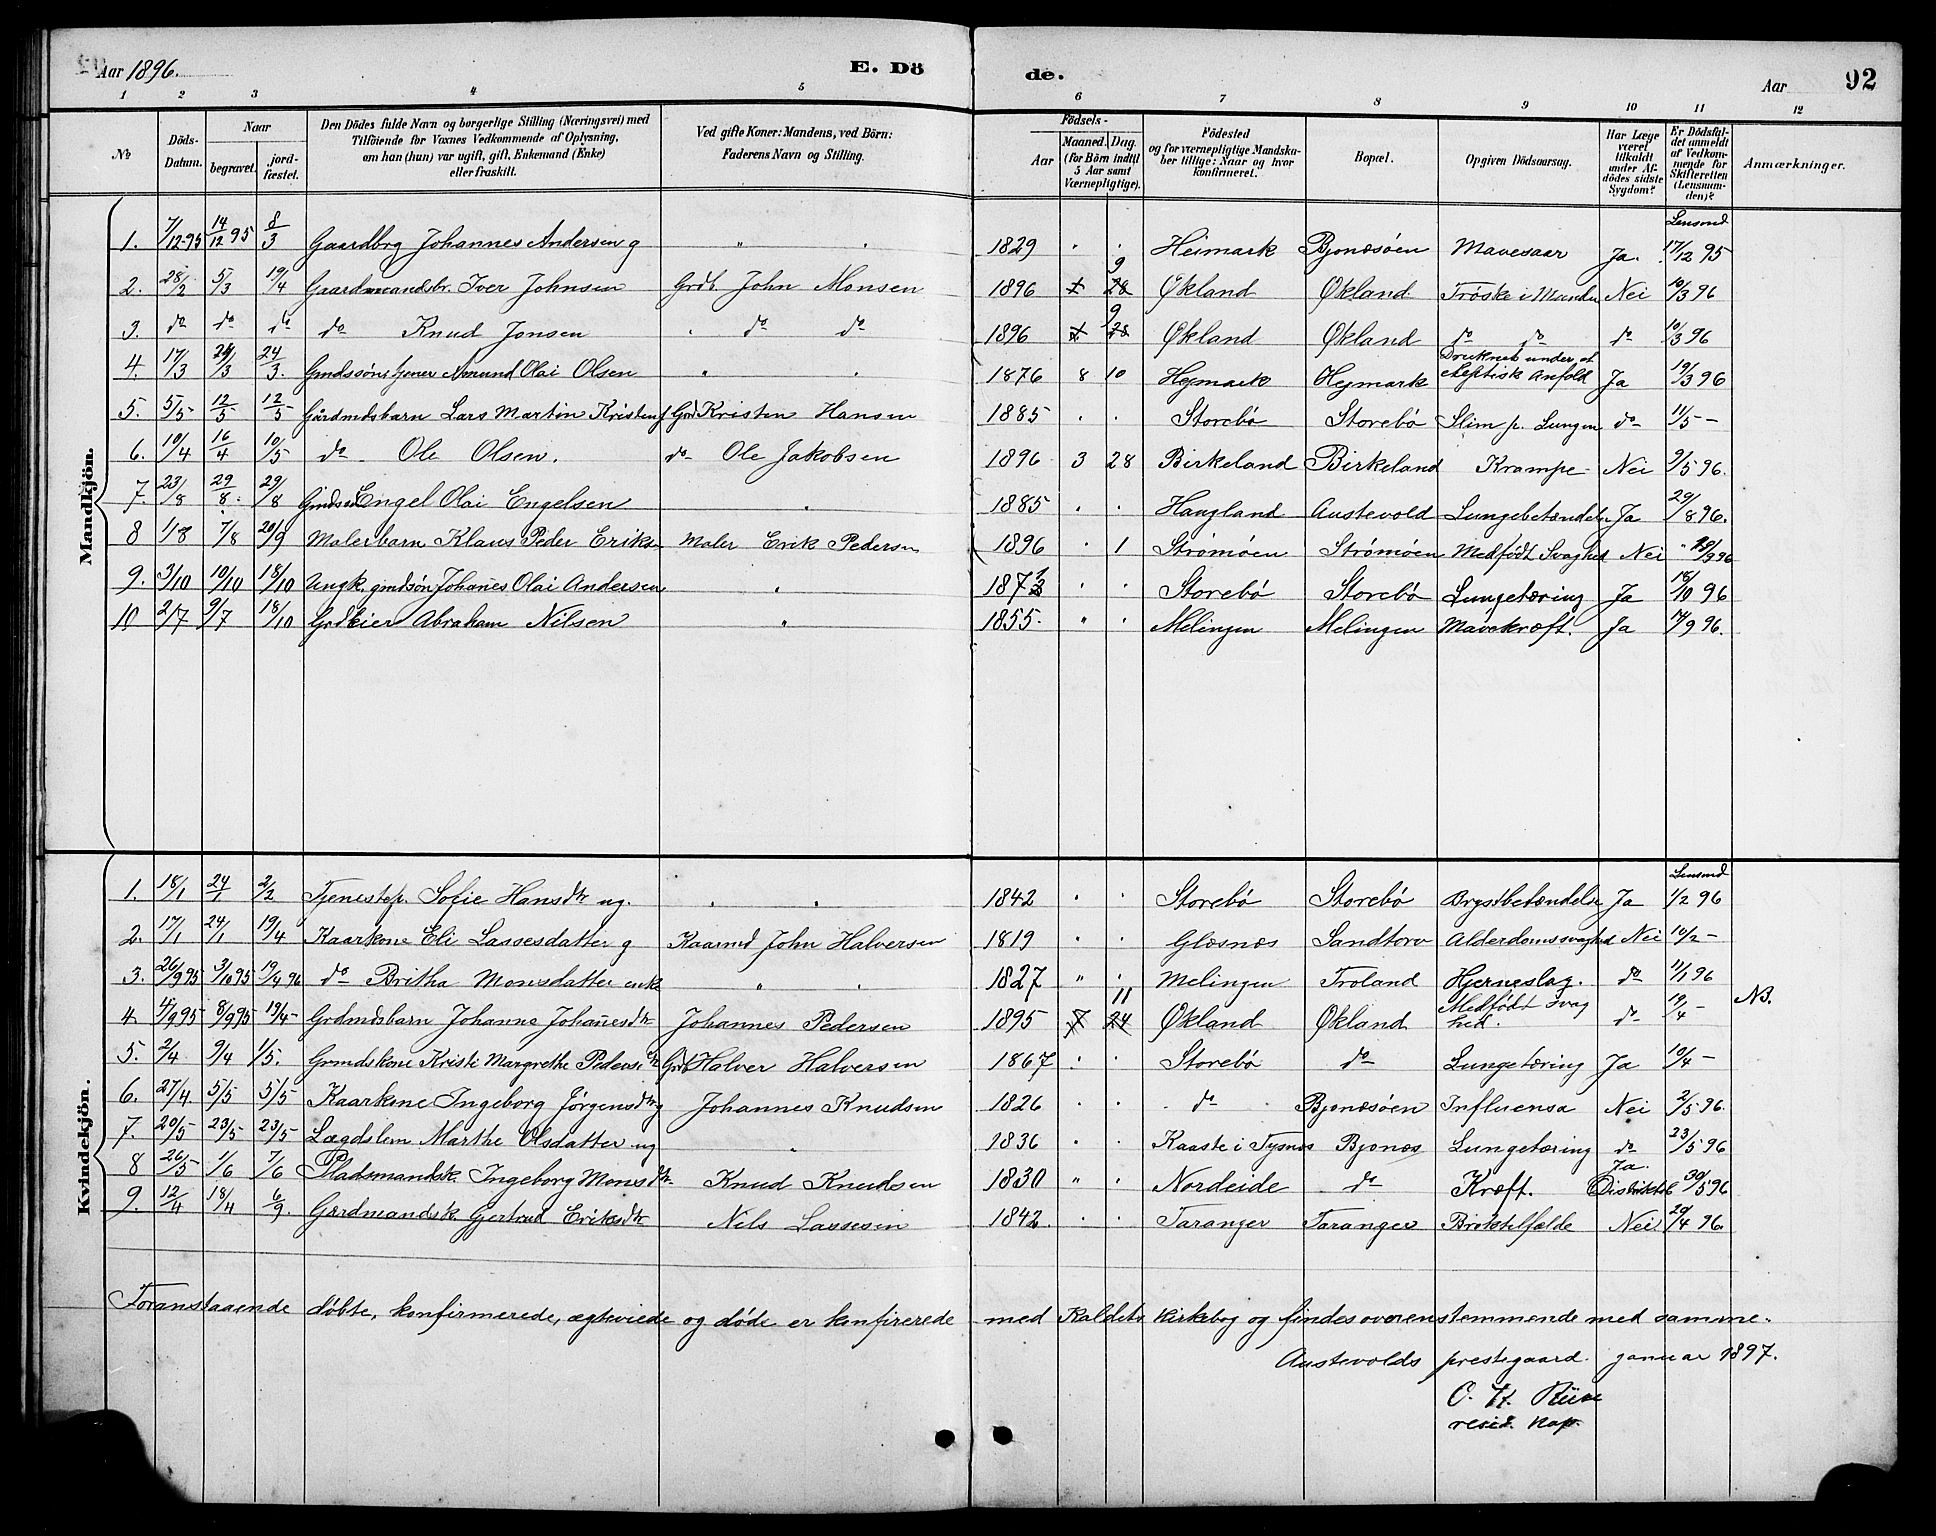 Aar 1896. E. Dö de. Aar 92
1 2 3 4 5 6 7 8 9 10 11 12
No Döds-Datum. Naar begravet. jord-fæstet. Den Dödes fulde Navn og borgerlige Stilling (Næringsvei) med Tilföiende for Voxnes Vedkommende af Oplysning, om han (hun) var ugift, gift, Enkemand (Enke) eller fraskilt. Ved gifte Koner: Mandens, ved Börn: Faderens Navn og Stilling. Födsels- Aar Maaned. Dag. (for Börn indtil 5 Aar samt Værnepligtige). Födested og for værnepligtige Mandskaber tillige: Naar og hvor konfirmeret. Bopæl. Opgiven Dödsaarsag. Har Læge været tilkaldt under Afdödes sidste Sygdom? Er Dödsfaldet anmeldt af Vedkommende for Skifteretten (Lensmanden)? Anmærkninger.
Mandkjön.
Lensmd
1. 7/12-95 14/12 95 8/3 Gaardbrg Johannes Andersen g " . 1829 . . Heimark Bjonæsöen Mavesaar Ja. 17/12 95
2. 28/2 5/3 19/4 Gaardmandsbr. Iver Johnsen Grdb. John Monsen 1896 1 28 9 Økland Økland Tröske i Munden Nei 10/3 96
3. do do do do Knud Jonsen " do do 1896 1 28 9 Økland Økland do do do 10/3 96
4. 17/3 24/3 24/3. Gmdssön, tjener Amund Olai Olsen " . 1876 8 10 Hejmark Hejmark Druknet under et eleptisk Anfald Ja 19/3 96
5. 5/5 12/5 12/5 Gårdmdsbarn Lars Martin Kristens Grd Kristen Hansen 1885 . . Storebø Storebø Slim p. Lungen do 11/5 -
6. 10/4 16/4 10/5 do Ole Olsen. do Ole Jakobsen 1896 3 28 Birkeland Birkeland Krampe Nei 9/5 96.
7. 23/8 29/8. 29/8 Gmdssön Engel Olai Engelsen . 1885 . . Haugland Austevold Lungebetændelse Ja 29/8 96.
8 1/8 7/8 20/9 Malerbarn Klaus Peder Eriks Maler Erik Pedersen 1896 . 1 Strömöen Strömöen Medfödt Svaghed Nei 19/9 96
9. 3/10 10/10 18/10 Ungk. gmdssön Johanes Olai Andersen . 1873 . . Storebø Storebø Lungetæring Ja 18/10 96
10 2/7 9/7 18/10 Grdeier Abraham Nilsen " 1855. " . Melingen Melingen Mavekræft. Ja 14/9 96.
Kvindekjön.
Lensmd
1. 18/1 24/1 2/2 Tjenestep. Sofie Hansdtr ug. . . 1842 . . Storebø Storebø Brystbetændelse Ja 1/2 96
2. 17/1 24/1 19/4 Kaarkone Eli Lassesdatter g Kaarmd John Halversen 1819 . . Glæsnæs Sandtorv Alderdomssvaghed Nei 10/2 -
3. 26/9 95 3/10 95 19/4 96 do Britha Monsdatter enke " " 1827 " . Melingen Troland Hjerneslag. do 11/1 96
4. 4/9 95 8/9 95 19/4 - Grdmdsbarn Johanne Johanesdtr Johannes Pedersen 1895 7 24 11 Økland Økland Medfödt Svaghed. do 19/4 - NB.
5. 2/4 9/4 1/5. Grmdskone Kristi Margrethe Pedersdtr Grdb Halver Halversen 1867 . . Storebø do Lungetæring Ja 10/4 -
6. 27/4 5/5 5/5 Kaarkone Ingeborg Jørgensdtr g Johannes Knudsen 1826 . . do Bjonæsöen Influensa Nei 2/5 96.
7. 20/5 23/5 23/5 Lægdslem Marthe Olsdatter ug " 1836 . . Kaaste i Tysnæs Bjonæs Lungetæring do 23/5 96
8 26/5 1/6 7/6 Pladsmandsk. Ingeborg Monsdtr. Knud Knudsen 1830 " . Nordeide do Kræft. Ja. Distriktsl 30/5 96
9. 12/4 18/4 6/9. Gardmandsk. Gjertrud Eriksdtr Nels Lassesen 1842. . . Taranger Taranger Broktilfælde Nei. 29/4 96.
Foranstaaende døbte, konfirmerede, ægteviede og døde er konfirerede med Kaldets Kirkebog og findes overenstemmende med samme.
Austevolds prestegaard. januar 1897.
O. H.
resid. Kap.